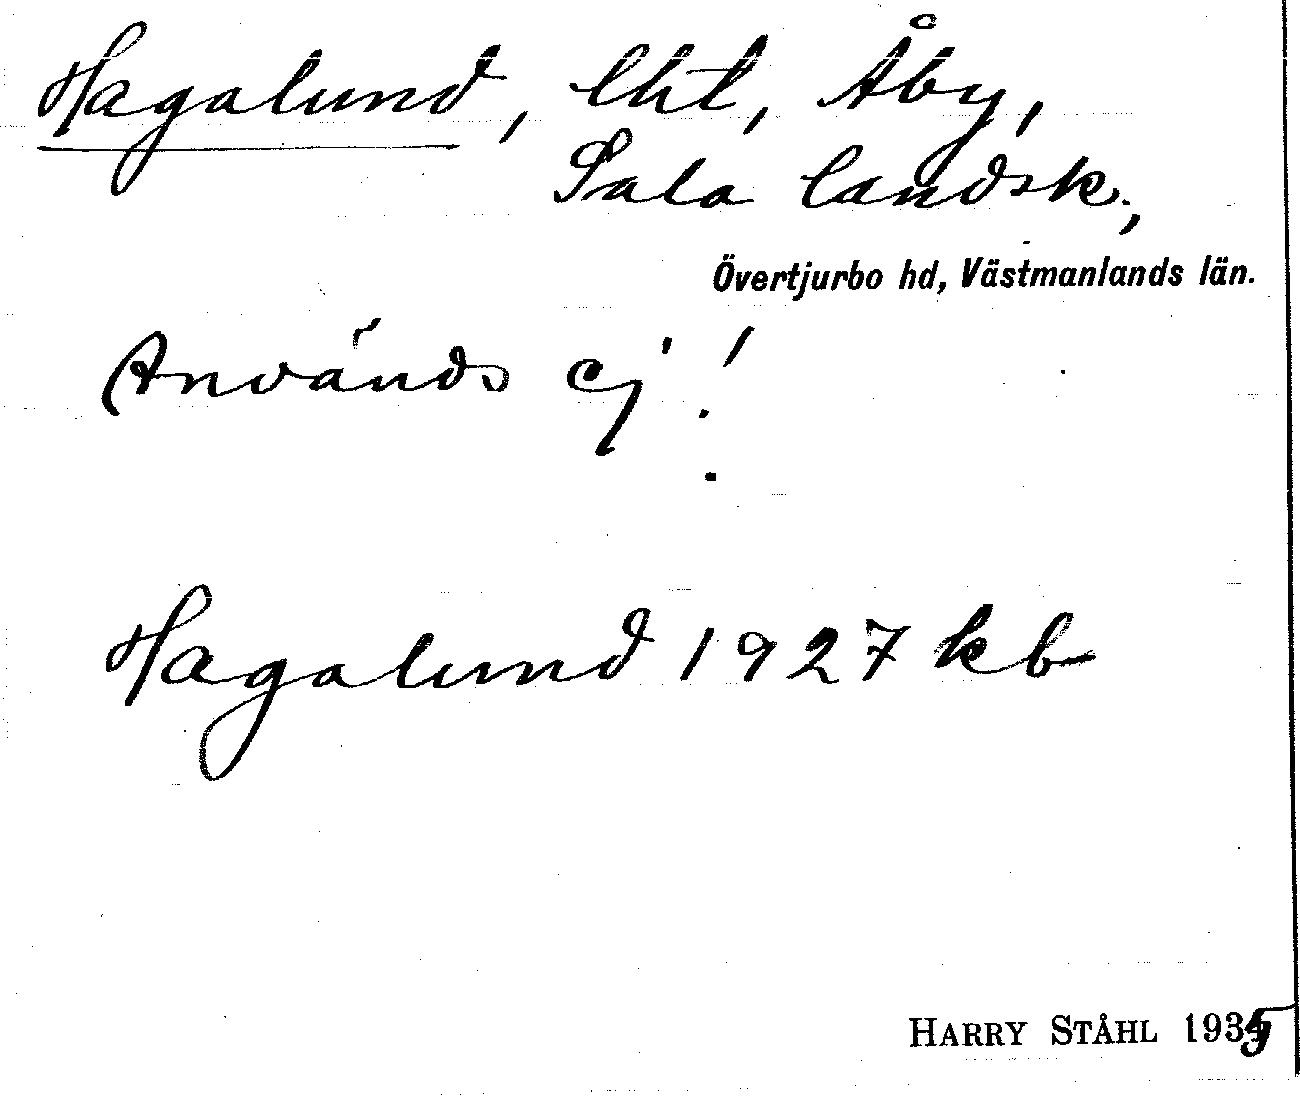 Hagalund, lht, Åby,
Sala landsk.,
Övertjurbo hd, Västmanlands län.
Används ej!
Hagalund 1927 kb
HARRY STÅHL 1935